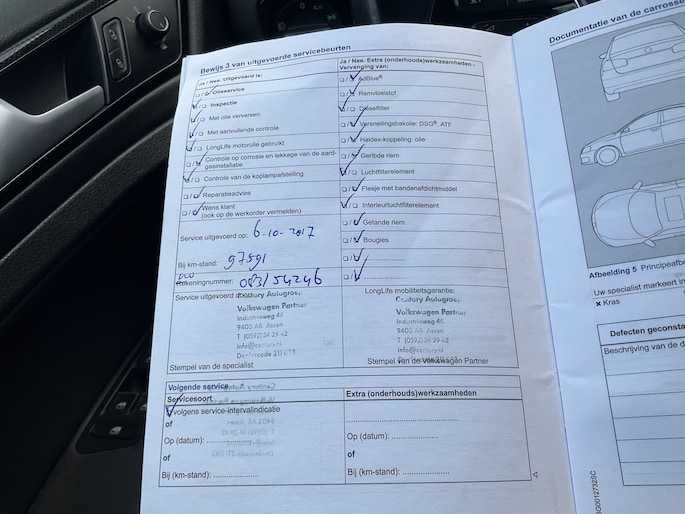 Bewijs 3 van uitgevoerde servicebeurten
Ja / Nee Uitgevoerd is:
Olieservice
Inspectie
Met olie verversen
Met aanvullende controle
LongLife motorolie gebruikt
Controle op corrosie en lekkage van de aard-
gasinstallatie
Controle van de koplampafstelling
Reparatieadvies
Wens klant
(ook op de werkorder vermelden)
Service uitgevoerd op: 6-10-2017
Bij km-stand: 97591
Rekeningnummer: 083/54246
Service uitgevoerd door:
Century Autogroep
Volkswagen Partner
Industrieweg 46
9403 AB Assen
T (0592) 34 29 42
info@century.nl
Stempel van de specialist
Ja / Nee Extra (onderhouds)werkzaamheden -
Vervanging van:
AdBlue®
Remvloeistof
Dieselfilter
Versnellingsbakolie: DSG®, ATF
Haldex-koppeling: olie
Geribde riem
Luchtfilterelement
Flesje met bandenafdichtmiddel
Interieurluchtfilterelement
Getande riem
Bougies
LongLife mobiliteitsgarantie:
Century Autogroep
Volkswagen Partner
Industrieweg 46
9403 AB Assen
T (0592) 34 29 42
info@century.nl
Stempel van de Volkswagen Partner
Volgende service
Servicesoort
Volgens service-intervalindicatie
of
Op (datum):
of
Bij (km-stand):
Extra (onderhouds)werkzaamheden
Op (datum):
of
Bij (km-stand):
Documentatie van de carrosse
Afbeelding 5 Principeafbe
Uw specialist markeert in
× Kras
Defecten geconsta
Beschrijving van de d
NG0012732SC